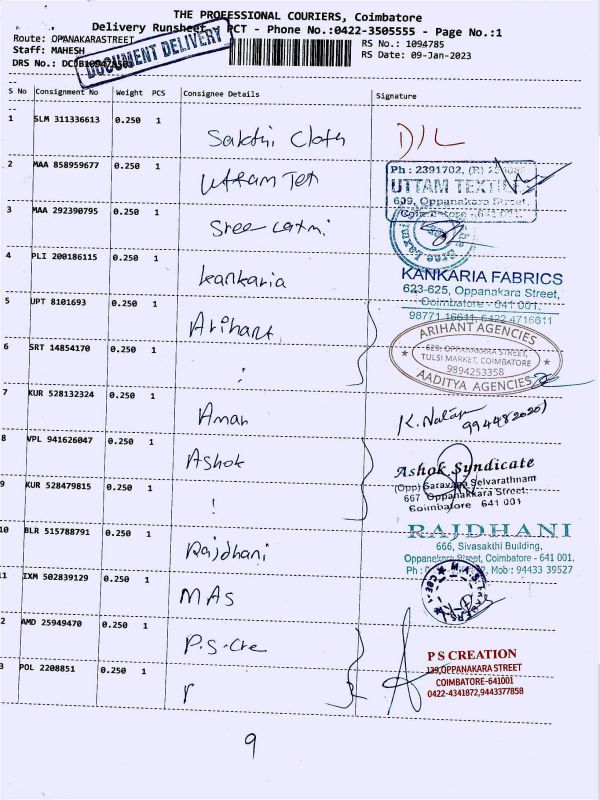 THE PROFESSIONAL COURIERS, Coimbatore
Delivery Runsheet PCT - Phone No.:0422-3505555 - Page No.:1
Route: OPANAKARASTREET RS No.: 1094785
Staff: MAHESH RS Date: 09-Jan-2023
DRS No.:
DOCUMENT DELIVERY
S No Consignment No Weight PCS Consignee Details Signature
1 SLM 311336613 0.250 1 Sakthi Cloth D/L
2 MAA 858959677 0.250 1 Uttam Tex
Ph : 2391702, (R)
UTTAM TEXTILES
609, Oppanakara Street,
Coimbatore - 641 001.
3 MAA 292390795 0.250 1 Sree Laxmi
4 PLI 200186115 0.250 1 Kankaria
KANKARIA FABRICS
623-625, Oppanakara Street,
Coimbatore - 641 001.
98771 16611
5 UPT 8101693 0.250 1 Arihant
ARIHANT AGENCIES
629, OPPANAKARA STREET,
TULSI MARKET, COIMBATORE
9894253358
AADITYA AGENCIES
6 SRT 14854170 0.250 1
7 KUR 528132324 0.250 1 Aman
8 VPL 941626047 0.250 1 Ashok
Ashok Syndicate
(Opp) Saravana Selvarathnam
667 Oppanakkara Street.
Coimbatore 641 001
9 KUR 528479815 0.250 1
10 BLR 515788791 0.250 1 Rajdhani
RAJDHANI
666, Sivasakthi Building,
Oppanekara Street, Coimbatore - 641 001.
Mob : 94433 39527
11 IXM 502839129 0.250 1 MAS
M.A.S.
2 AMD 25949470 0.250 1 P.S-Cre
P S CREATION
139,OPPANAKARA STREET
COIMBATORE-641001
0422-4341872,9443377858
3 POL 2208851 0.250 1
9